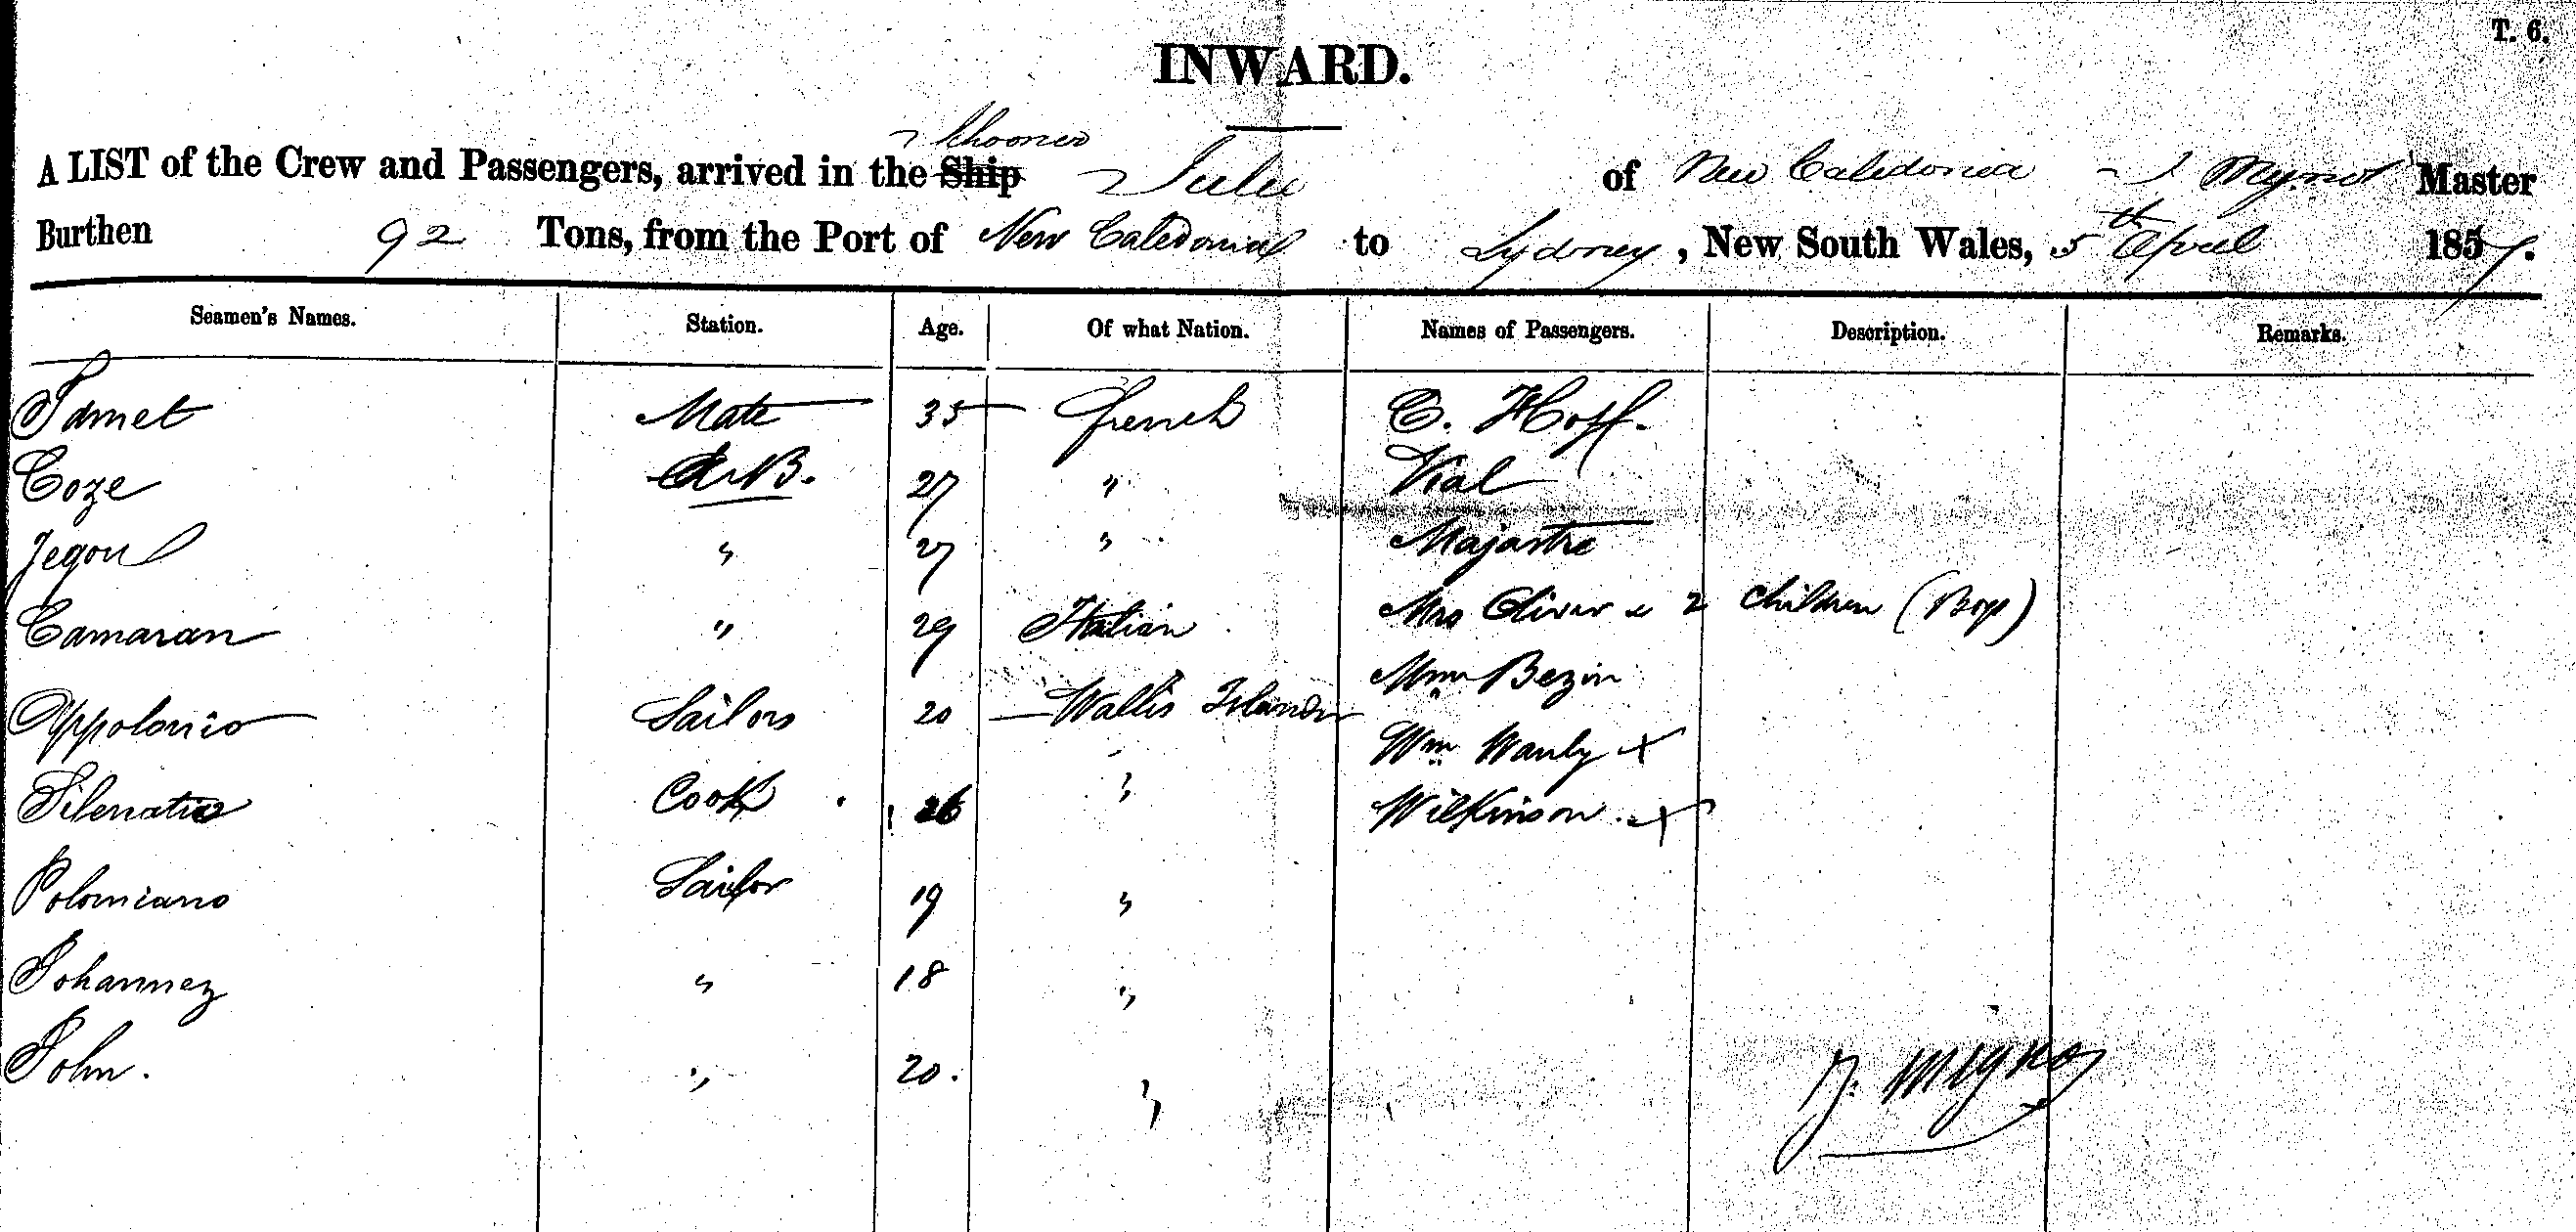 T. 6.
INWARD.
Schooner
A LIST of the Crew and Passengers, arrived in the Ship Julie of New Caledonia J Mygnot Master
Burthen 92 Tons, from the Port of New Caledonia to Sydney, New South Wales, 5th April 1857.
Seamen's Names. Station. Age. Of what Nation. Names of Passengers. Description. Remarks.
Mate 35 French C. Hoff.
Coze A.B. 27 " Vial
Jegou " 27 " Majastre
Camaran " 29 Italian Mrs Oliver & 2 Children (Boys)
Bezin
Appolonio Sailors 20 Wallis Islander
Wm Wanly x
Silenatio Cook 26 " Wilkinson. x
Polomiano Sailor 19 "
Johannez " 18 "
John. " 20. "
J. Migno